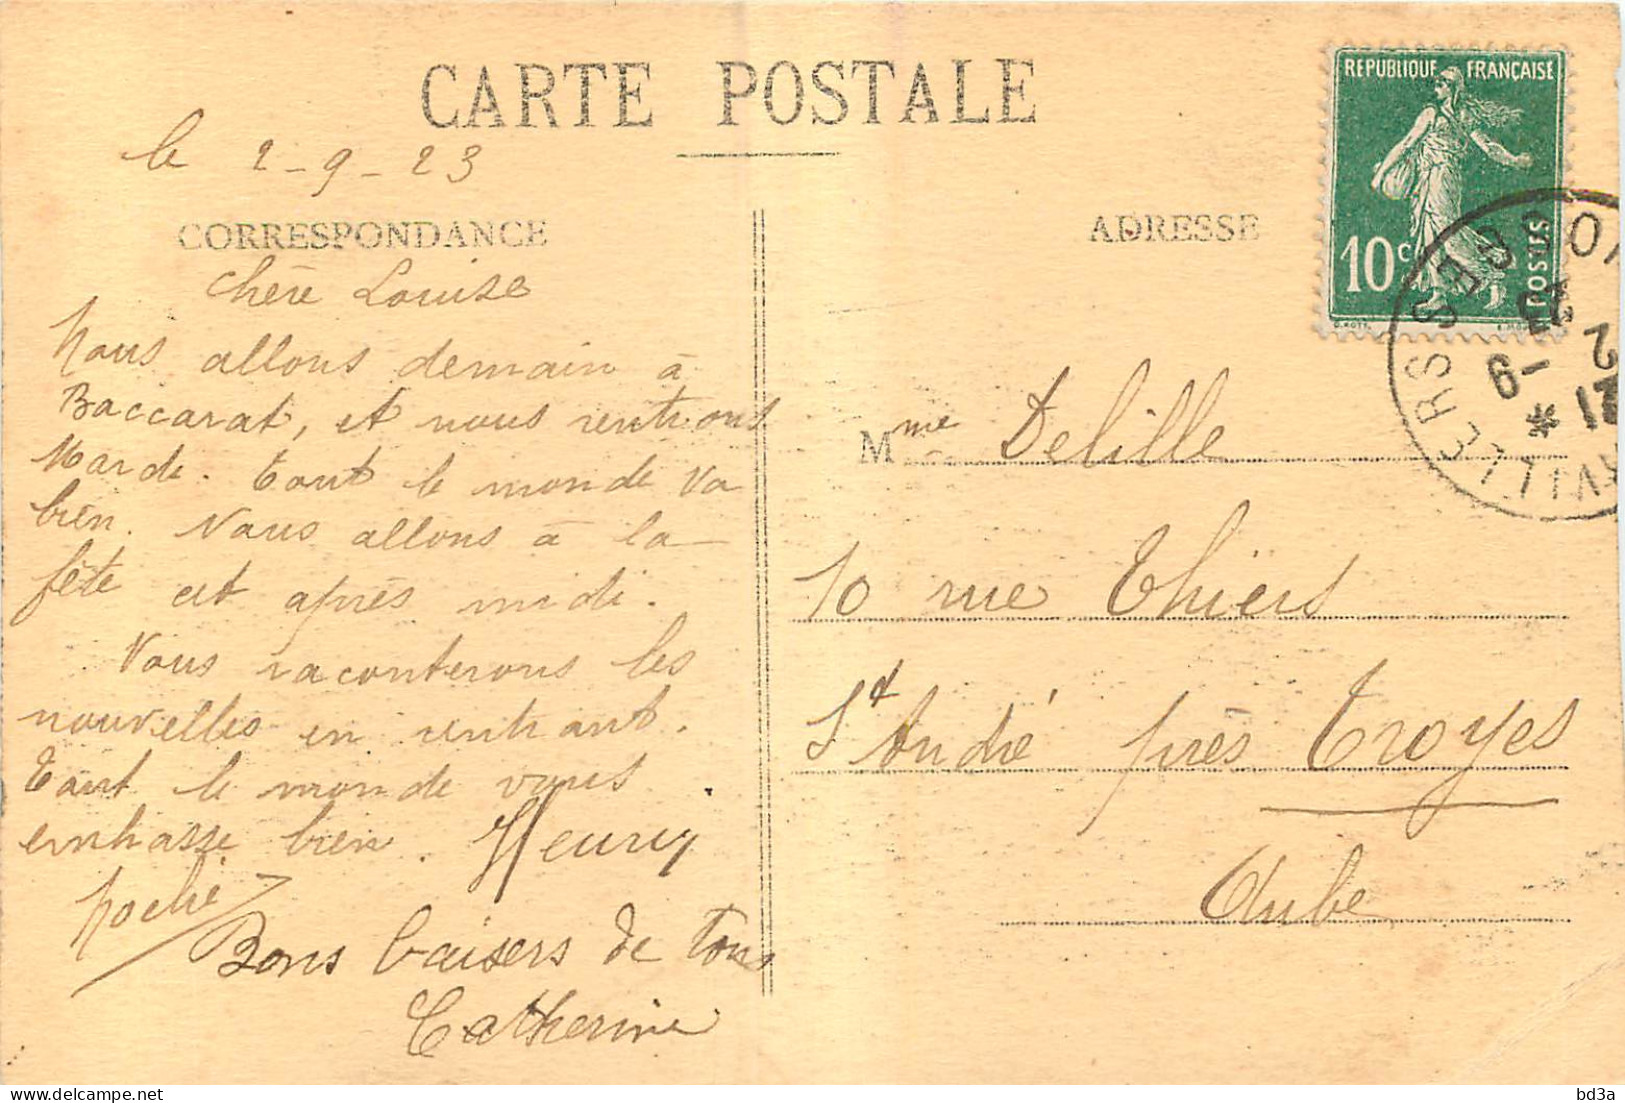 CARTE POSTALE
le 2-9-23
CORRESPONDANCE
chère Louise
Nous allons demain à
Baccarat, et nous rentrons
Mardi. Tout le monde va
bien. Nous allons à la
fête cet après midi.
Vous raconterons les
nouvelles en rentrant.
Tout le monde vous
embrasse bien. Fleury
Bons baisers de tous
Catherine
ADRESSE
REPUBLIQUE FRANÇAISE
10c
POSTES
VILLERS
VOSGES
21
2 -9
23
Mme Delille
10 rue Thiers
St André près Troyes
Aube
bd3a